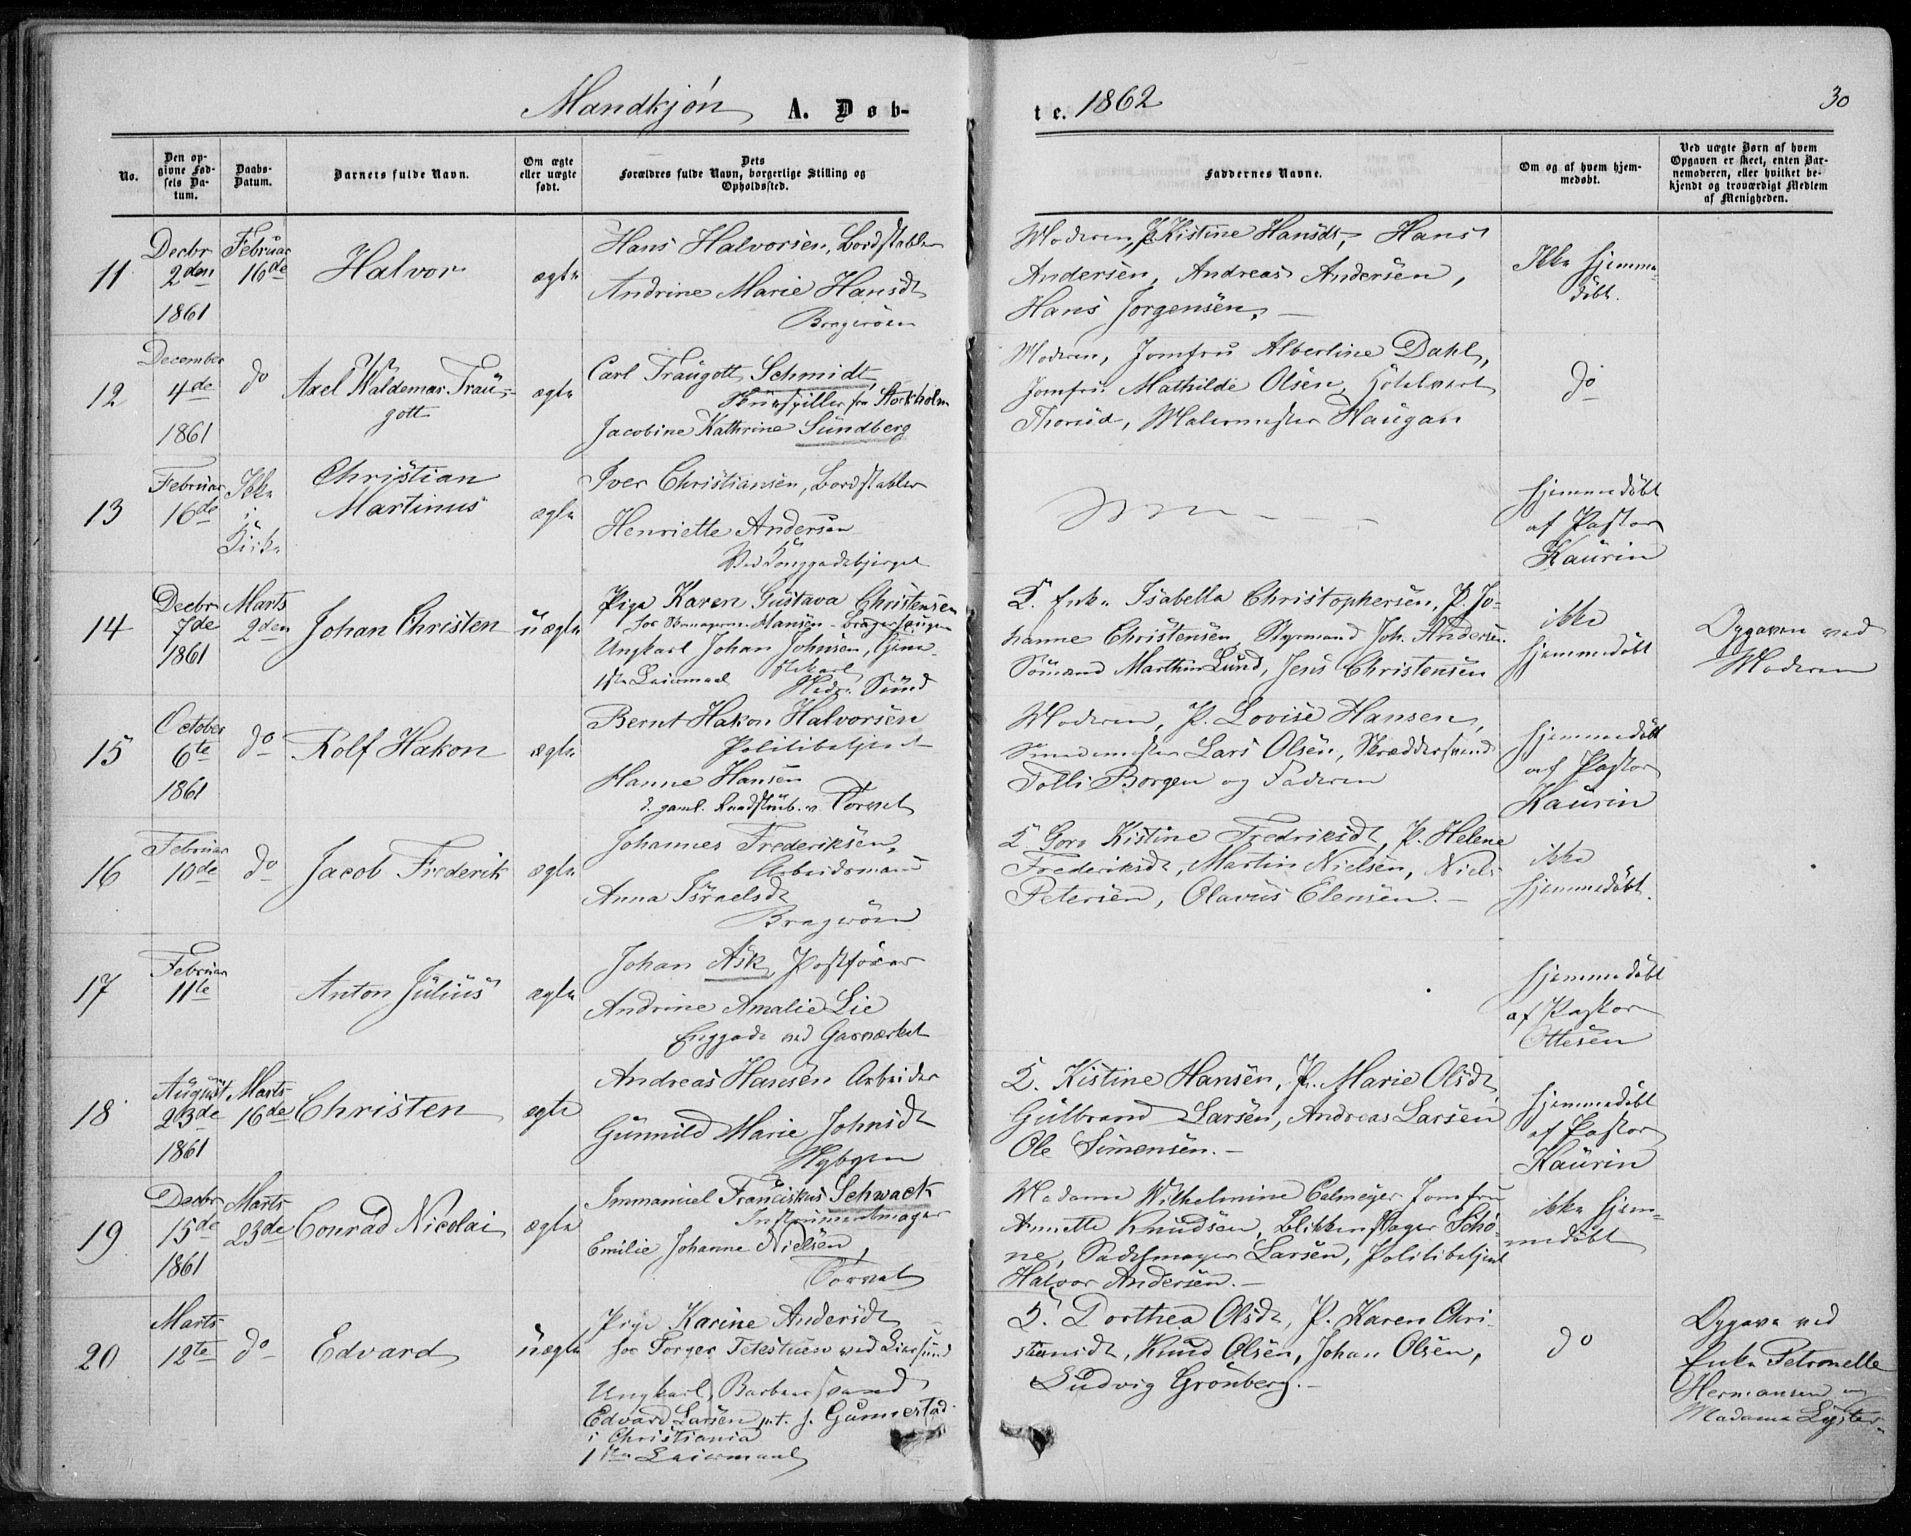 Mandkjøn A. Døb-
te. 1862
30
No.
Den op-
givne Fød-
sels Da-
tum.
Daabs-
Datum.
Barnets fulde Navn.
Om ægte
eller uægte
født.
Dets
Forældres fulde Navn, borgerlige Stilling og
Opholdssted.
Faddernes Navne.
Om og af hvem hjem-
medøbt.
Ved uægte Børn af hvem
Opgaven er skeet, enten Bar-
nemoderen, eller hvilket be-
kjendt og troværdigt Medlem
af Menigheden.
11
Decbr
2den
1861
Februar
16de
Halvor
ægte
Hans Halvorsen, Bordstabler
Andrine Marie Hansdt
Bragerøen
Moderen, P. Kistine Hansdt, Hans
Andersen, Andreas Andersen,
Hans Jørgensen. —
Ikke hjemme-
døbt.
12
December
4de
1861
do
Axel Waldemar Trau-
gott
ægte
Carl Traugott Schmidt,
fra Stockholm
Jacobine Kathrine Sundberg
Moderen, Jomfru Albertine Dahl,
Jomfru Mathilde Olsen, Hotelvært
Thorud, Malermester Haugan
do
13
Februar
16de
Ikke
i
Kirke
Christian
Martinus
ægte
Iver Christiansen, Bordstabler
Henriette Andersen
Ved
hjemmedøbt
af Pastor
Kaurin
14
Decbr
7de
1861
Marts
2den
Johan Christen
uægte
Pige Karen Gustava Christensen
hos Hansen
Ungkarl Johan Johnsen,
1ste Leiermaal
Sund
2. Enke Isabella Christophersen, P. Jo-
hanne Christensen, Styrmand Joh. Andersen
Sømand Marthin Lund, Jens Christensen
ikke
hjemmedøbt
Opgaven ved
Moderen
15
October
6te
1861
do
Rolf Hakon
ægte
Bernt Hakon Halvorsen
Politibetjent
Hanne Hansen
d. gaml. Raadstueb. v. Torvet
Moderen, P. Lovise Hansen,
Smedemester Lars Olsen, Skræddersvend
Tolli Borgen og Faderen
hjemmedøbt
af Pastor
Kaurin
16
Februar
10de
do
Jacob Frederik
ægte
Johannes Frederiksen,
Arbeidsmand
Anna Israelsdt
Bragerøen
2 Goro Kistine Fredriksdt, P. Helene
Frederiksdt, Martin Nielsen, Niels
Petersen, Olavus Elensen. —
ikke
hjemmedøbt.
17
Februar
11te
Anton Julius
ægte
Johan Ask, Postfører
Andrine Amalie Lie
Enggade ved Gasværket
hjemmedøbt
af Pastor
Ottesen
18
August
23de
1861
Marts
16de
Christen
ægte
Andreas Hansen Arbeider
Gunnild Marie Johnsdt
Nybyen
2. Kistine Hansen, P. Marie Olsdt,
Gulbrand Larsen, Andreas Larsen
Ole Simensen. —
hjemmedøbt
af Pastor
Kaurin
19
Decbr
15de
1861
Marts
23de
Conrad Nicolai
ægte
Immanuel Franciskus Schwack
Instrumentmager
Emilie Johanne Nielsen,
Torvet
Madame Wilhelmine Calmeyer Jomfru
Annette Knudsen, Blikkenslager Schø-
ne, Sadelmager Larsen, Politibetjent
Halvor Andersen. —
ikke hjem-
medøbt
20
Marts
12te
do
Edvard
uægte
Pige Karine Andersdt
hos Torger ved Liersund
Ungkarl, Barbeersvend
Edvard Larsen p.t. h. Gunnestad
i Christiania
1ste Leiermaal
2. Dorthea Olsdt, P. Karen Chri-
stiansdt, Knud Olsen, Johan Olsen,
Ludvig Grønberg. —
do
Opgave ved
Enke Petronelle
Hermansen og
Madame